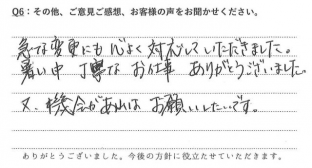 Q6：その他、ご意見ご感想、お客様の声をお聞かせください。
急な変更にも心よく対応していただきました。
暑い中 丁寧な お仕事 ありがとうございました。
又、機会があれば お願いしたいです。
ありがとうございました。今後の方針に役立たせていただきます。